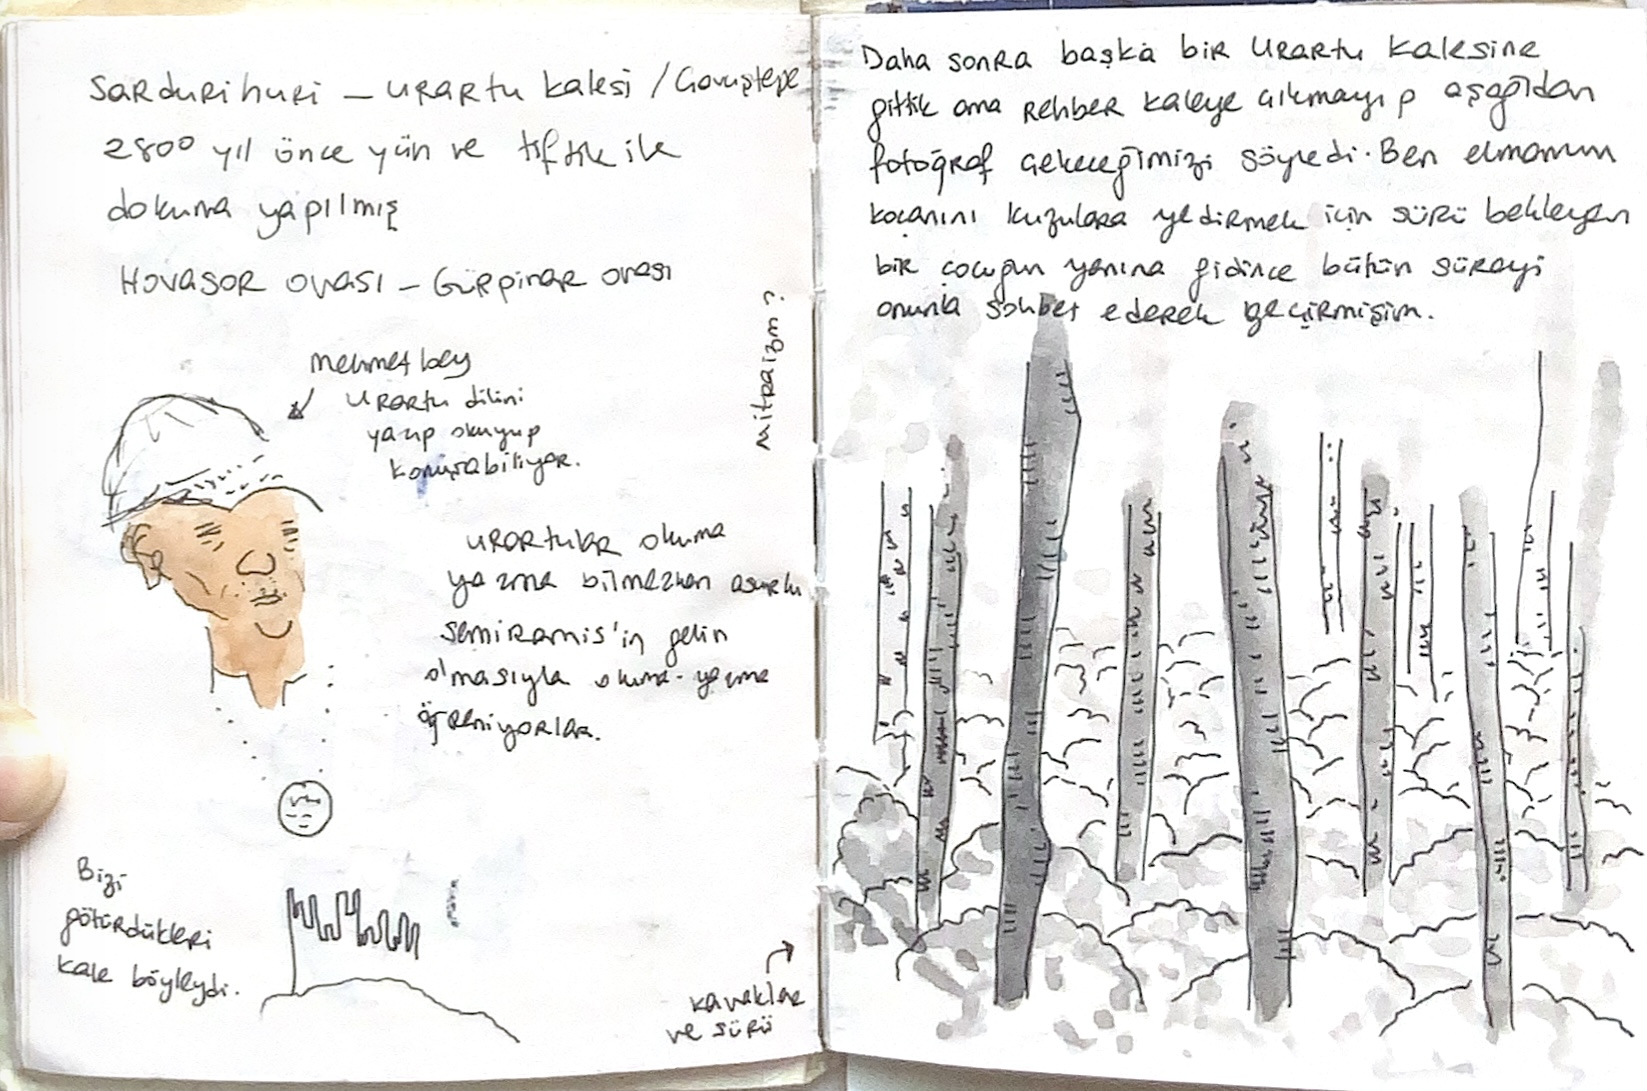 Sardurihuri – Urartu kalesi / Çavuştepe
2800 yıl önce yün ve tiftik ile
dokuma yapılmış
Havasor ovası – Gürpınar ovası
mitraizm?
Mehmet bey
Urartu dilini
yazıp okuyup
konuşabiliyor.
Urartular okuma
yazma bilmezken asurlu
Semiramis'in gelin
olmasıyla okuma-yazma
öğreniyorlar.
Bizi
götürdükleri
kale böyleydi.
kavaklar
ve sürü
Daha sonra başka bir Urartu kalesine
gittik ama rehber kaleye çıkmayıp aşağıdan
fotoğraf çekeceğimizi söyledi. Ben elmamın
koçanını kuzulara yedirmek için sürü bekleyen
bir çocuğun yanına gidince bütün süreyi
onunla sohbet ederek geçirmişim.